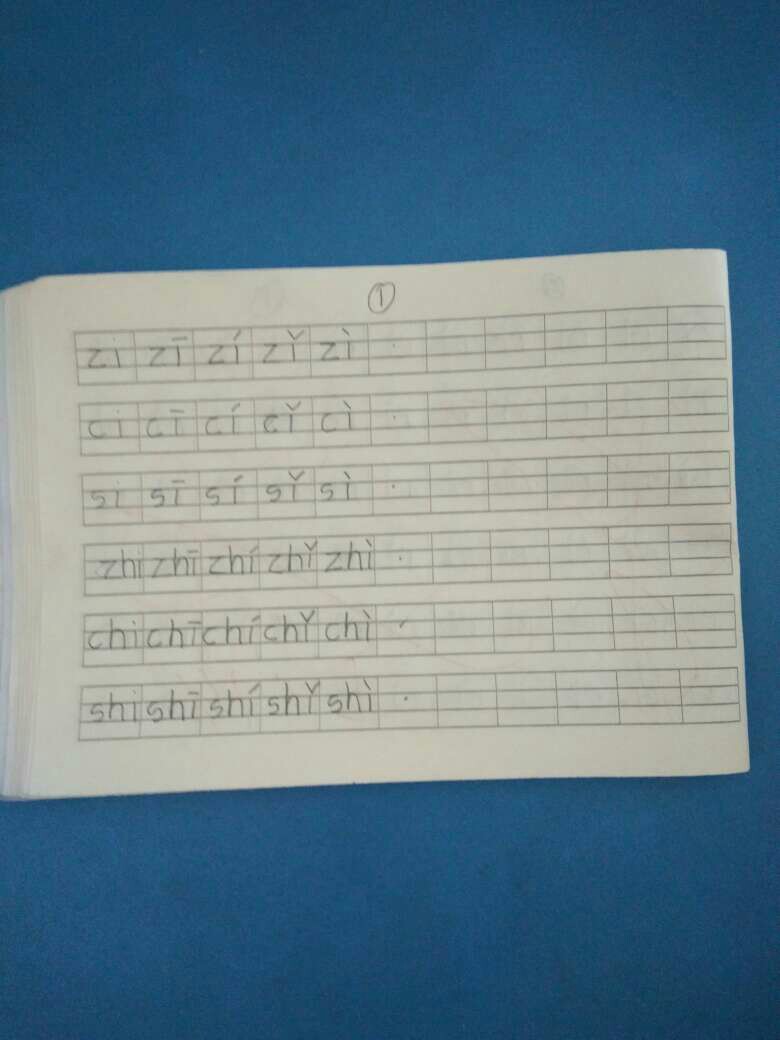 ①
zi zī zí zǐ zì
ci cī cí cǐ cì
si sī sí sǐ sì
zhi zhī zhí zhǐ zhì
chi chī chí chǐ chì
shi shī shí shǐ shì